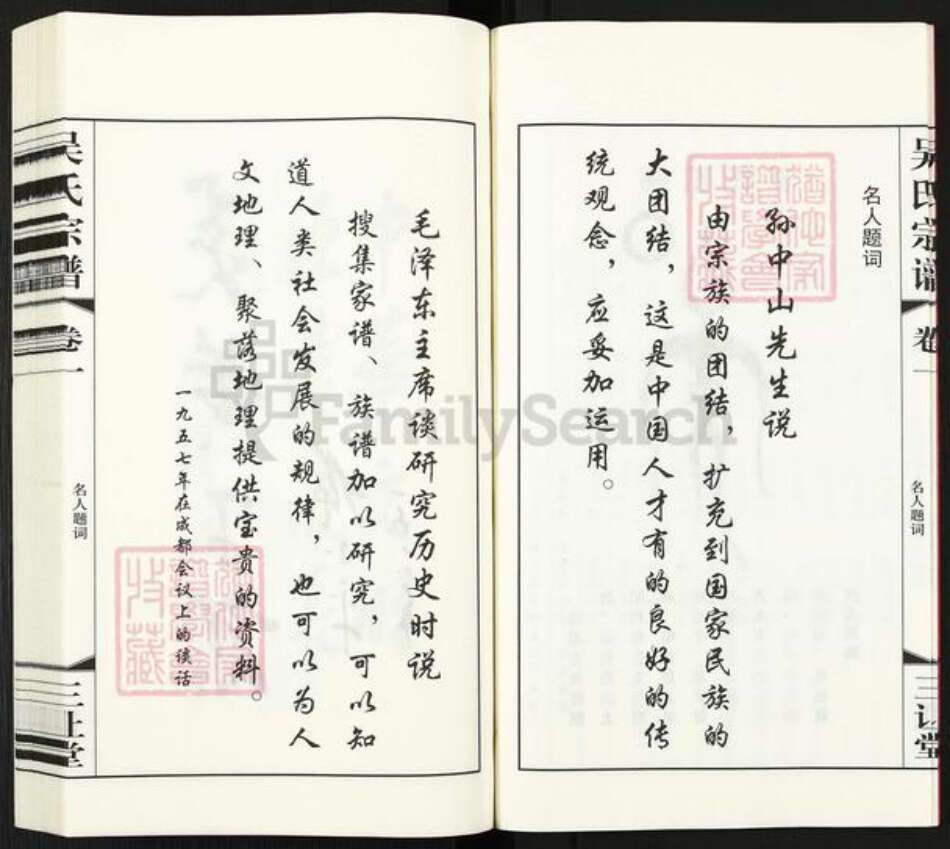 名人题词
孙中山先生说
由宗族的团结，扩充到国家民族的
大团结，这是中国人才有的良好的传
统观念，应妥加运用。
吴氏宗谱
卷一
名人题词
三让堂
毛泽东主席谈研究历史时说
搜集家谱、族谱加以研究，可以知
道人类社会发展的规律，也可以为人
文地理、聚落地理提供宝贵的资料。
一九五七年在成都会议上的谈话
吴氏宗谱
卷一
名人题词
三让堂
FamilySearch
收藏